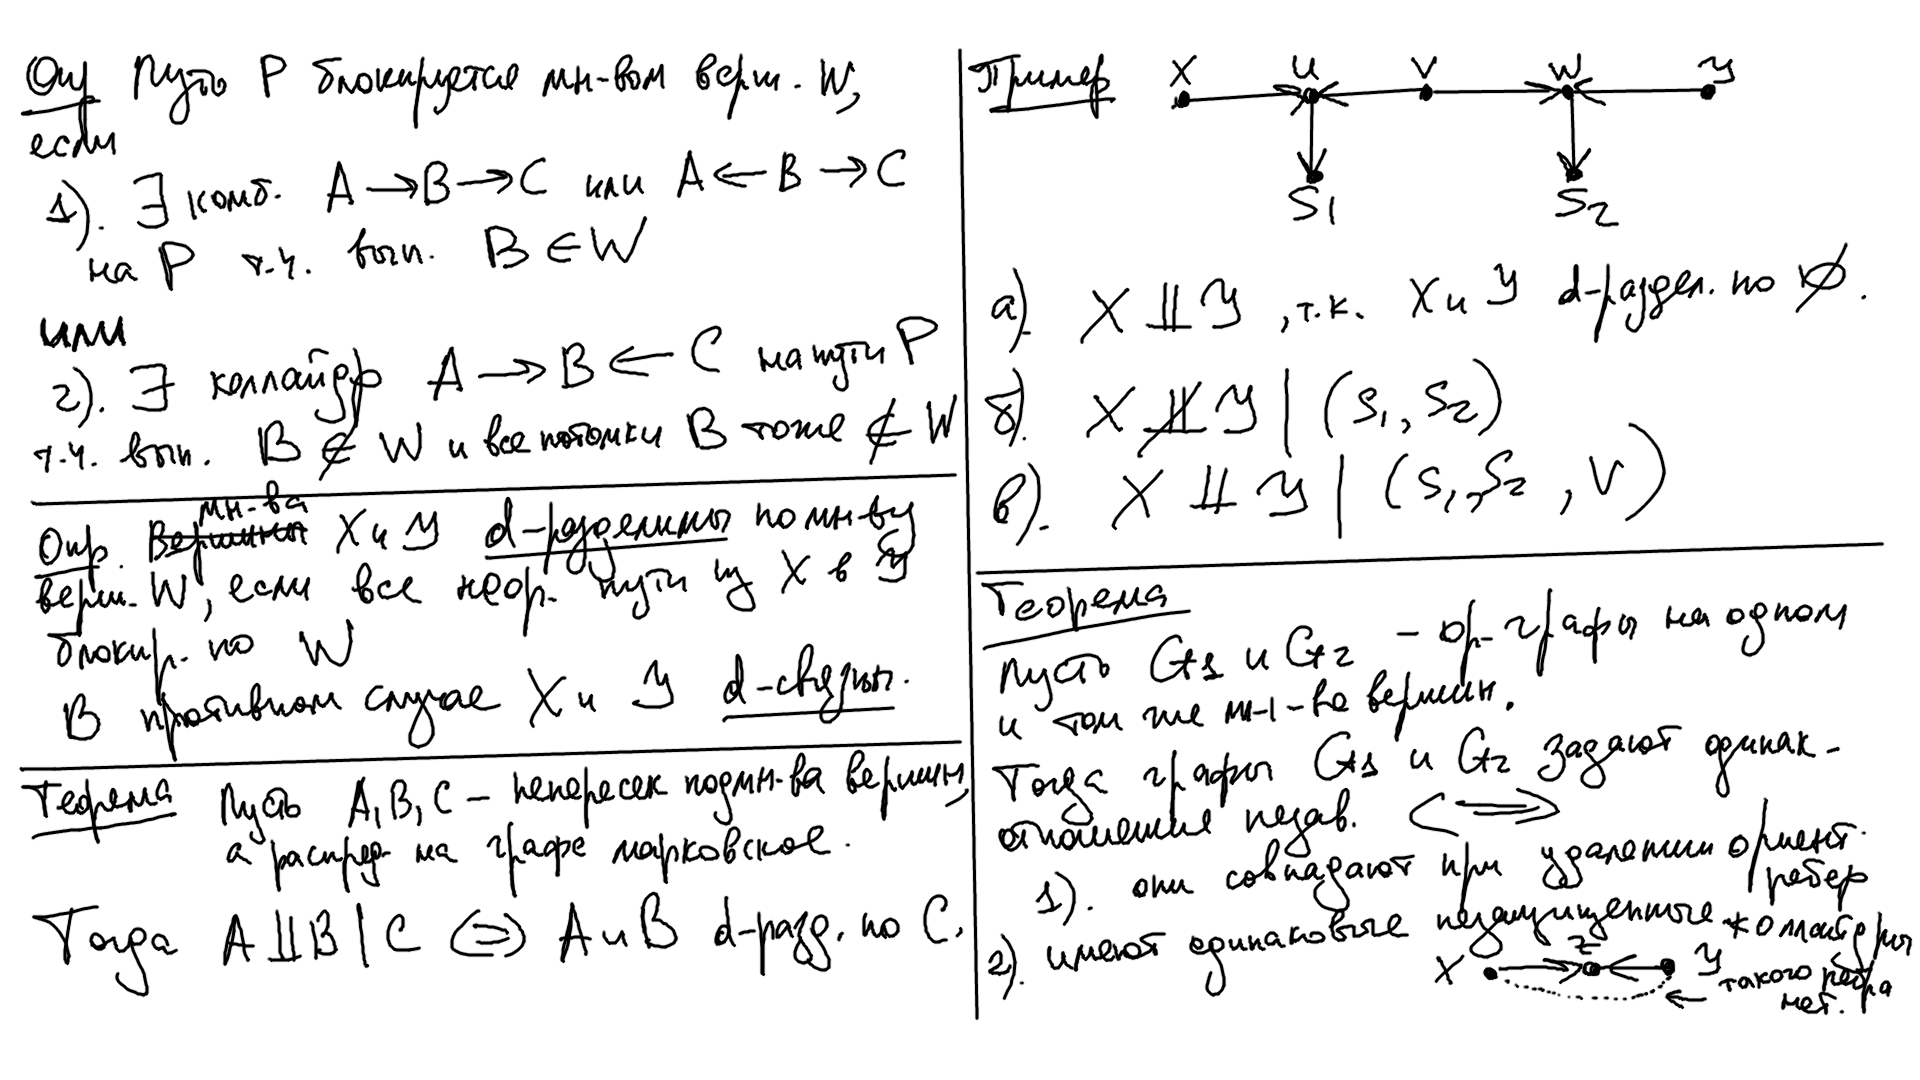 Опр Путь P блокируется мн-вом верш. W,
если
1). ∃ комб. A → B → C или A ← B → C
на P т.ч. вып. B ∈ W
или
2). ∃ коллайдер A → B ← C на пути P
т.ч. вып. B ∉ W и все потомки B тоже ∉ W
мн-ва
Опр. Вершины X и Y d-разделимы по мн-ву
верш. W, если все неор. пути из X в Y
блокир. по W
В противном случае X и Y d-связны.
Теорема Пусть A, B, C – непересек подмн-ва вершин,
а распред на графе марковское.
Тогда A ⫫ B | C ⇔ A и B d-разд. по C.
Пример X U V W Y
S1 S2
а). X ⫫ Y, т.к. X и Y d-раздел. по ∅.
б). X ⫫̸ Y | (S1, S2)
в). X ⫫ Y | (S1, S2, V)
Теорема
Пусть G1 и G2 – ор-графы на одном
и том же мн-ве вершин.
Тогда графы G1 и G2 задают одинак-
отношение незав. ⇔
1). они совпадают при удалении ориент.
ребер
2). имеют одинаковые незащищенные коллайдеры
X Z Y
такого ребра
нет.